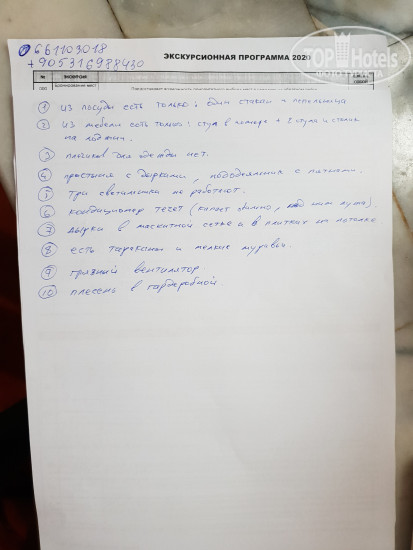 TOP Hotels
661103018
+905316988430
ЭКСКУРСИОННАЯ ПРОГРАММА 2020
№ ЭКСКУРСИЯ
① из посуды есть только: один стакан и пепельница
② из мебели есть только: стул в номере + 2 стула и столик
на лоджии.
③ плечиков для одежды нет.
④ простыня с дырками, пододеяльник с пятнами.
⑤ три светильника не работают.
⑥ кондиционер течет (капает сильно, под ним лужа)
⑦ дырки в москитной сетке и в плитках на потолке
⑧ есть тараканы и мелкие муравьи.
⑨ грязный вентилятор
⑩ плесень в гардеробной.